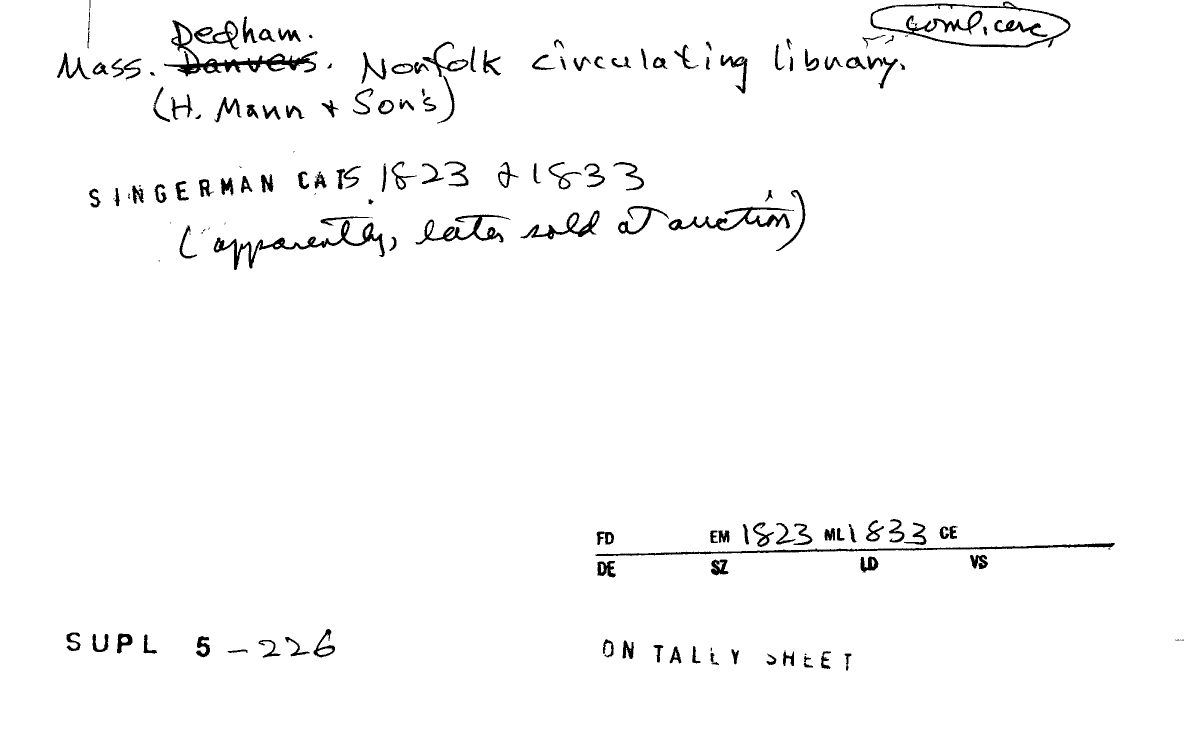 coml. circ
Dedham.
Mass. Danvers. Norfolk circulating library.
(H. Mann & Son's)
SINGERMAN CATS 1823 & 1833
(apparently, later sold at auction)
FD EM 1823 ML 1833 CE
DE SZ LD VS
SUPL 5 - 226
ON TALLY SHEET